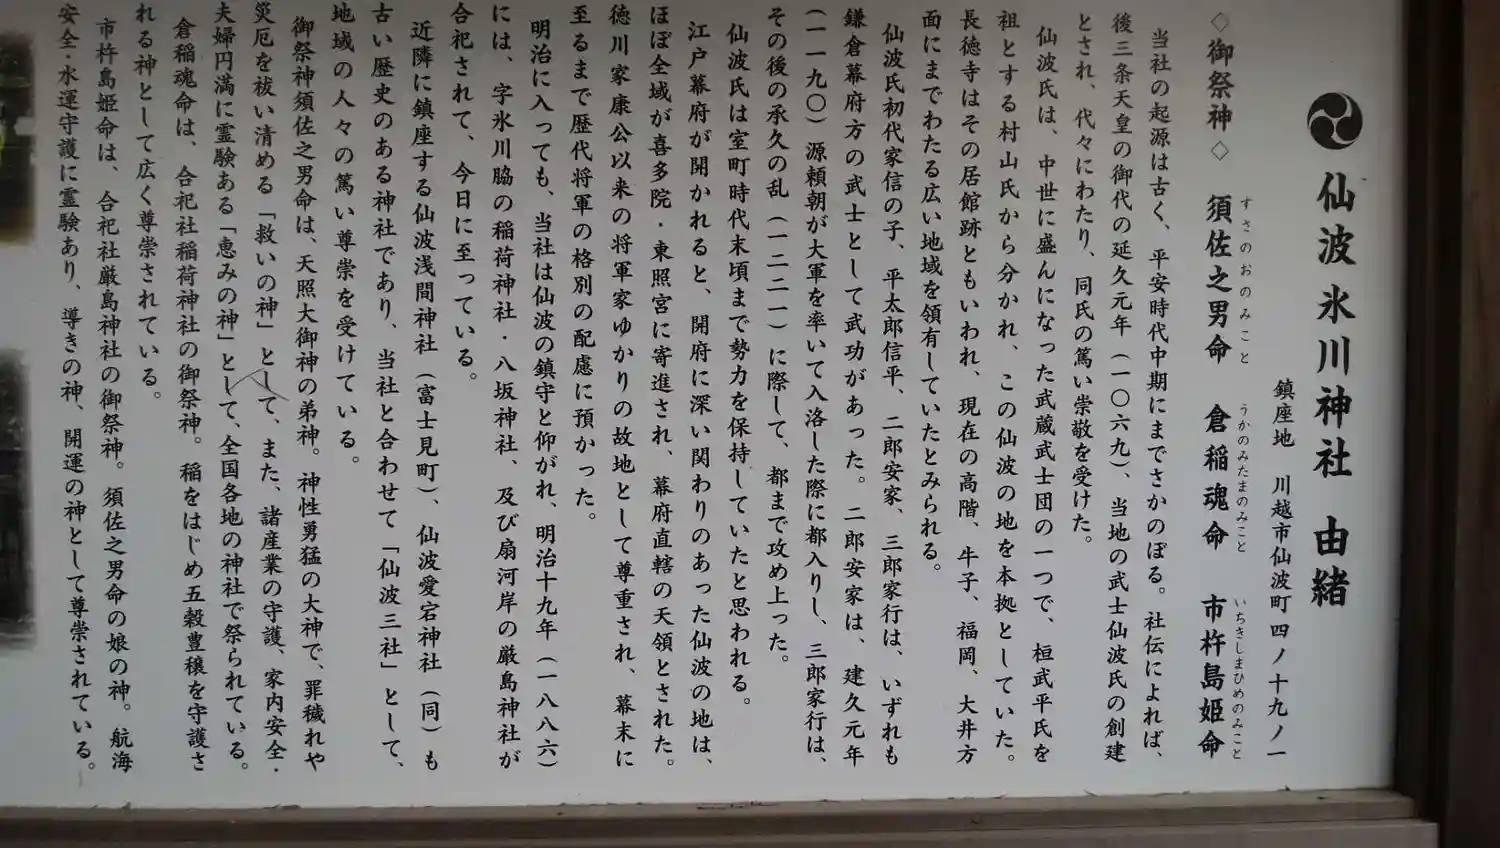 仙波氷川神社 由緒
鎮座地 川越市仙波町四ノ十九ノ一
◇御祭神◇ 須佐之男命 倉稲魂命 市杵島姫命
すさのおのみこと うかのみたまのみこと いちきしまひめのみこと
当社の起源は古く、平安時代中期にまでさかのぼる。社伝によれば、
後三条天皇の御代の延久元年(一〇六九)、当地の武士仙波氏の創建
とされ、代々にわたり、同氏の篤い崇敬を受けた。
仙波氏は、中世に盛んになった武蔵武士団の一つで、桓武平氏を
祖とする村山氏から分かれ、この仙波の地を本拠としていた。
長徳寺はその居館跡ともいわれ、現在の高階、牛子、福岡、大井方
面にまでわたる広い地域を領有していたとみられる。
仙波氏初代家信の子、平太郎信平、二郎安家、三郎家行は、いずれも
鎌倉幕府方の武士として武功があった。二郎安家は、建久元年
(一一九〇)源頼朝が大軍を率いて入洛した際に都入りし、三郎家行は、
その後の承久の乱(一二二一)に際して、都まで攻め上った。
仙波氏は室町時代末頃まで勢力を保持していたと思われる。
江戸幕府が開かれると、開府に深い関わりのあった仙波の地は、
ほぼ全域が喜多院・東照宮に寄進され、幕府直轄の天領とされた。
徳川家康公以来の将軍家ゆかりの故地として尊重され、幕末に
至るまで歴代将軍の格別の配慮に預かった。
明治に入っても、当社は仙波の鎮守と仰がれ、明治十九年(一八八六)
には、字氷川脇の稲荷神社・八坂神社、及び扇河岸の厳島神社が
合祀されて、今日に至っている。
近隣に鎮座する仙波浅間神社(富士見町)、仙波愛宕神社(同)も
古い歴史のある神社であり、当社と合わせて「仙波三社」として、
地域の人々の篤い尊崇を受けている。
御祭神須佐之男命は、天照大御神の弟神。神性勇猛の大神で、罪穢れや
災厄を祓い清める「救いの神」として、また、諸産業の守護、家内安全・
夫婦円満に霊験ある「恵みの神」として、全国各地の神社で祭られている。
倉稲魂命は、合祀社稲荷神社の御祭神。稲をはじめ五穀豊穣を守護さ
れる神として広く尊崇されている。
市杵島姫命は、合祀社厳島神社の御祭神。須佐之男命の娘の神。航海
安全・水運守護に霊験あり、導きの神、開運の神として尊崇されている。